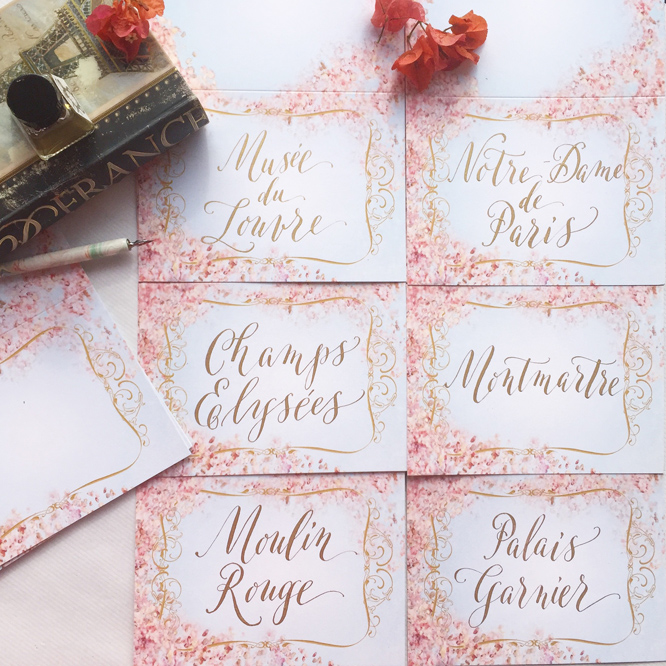 FRANCE
Musée
du
Louvre
Notre-Dame
de
Paris
Champs
Elysées
Montmartre
Moulin
Rouge
Palais
Garnier